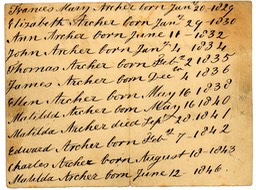 Frances Mary Archer born Jany 20-1829
Elizabeth Archer born Jany 29-1830
Ann Archer born June 11-1832
John Archer born Jany 4-1834
Thomas Archer born Feby 2 1835
James Archer born Decr 4 1836
Ellen Archer born May 16 1838
Matilda Archer born May 16 1840
Matilda Archer died Sept 28 1841
Edward Archer born Feby 7-1842
Charles Archer born August 13-1843
Matilda Archer born June 12-1846.